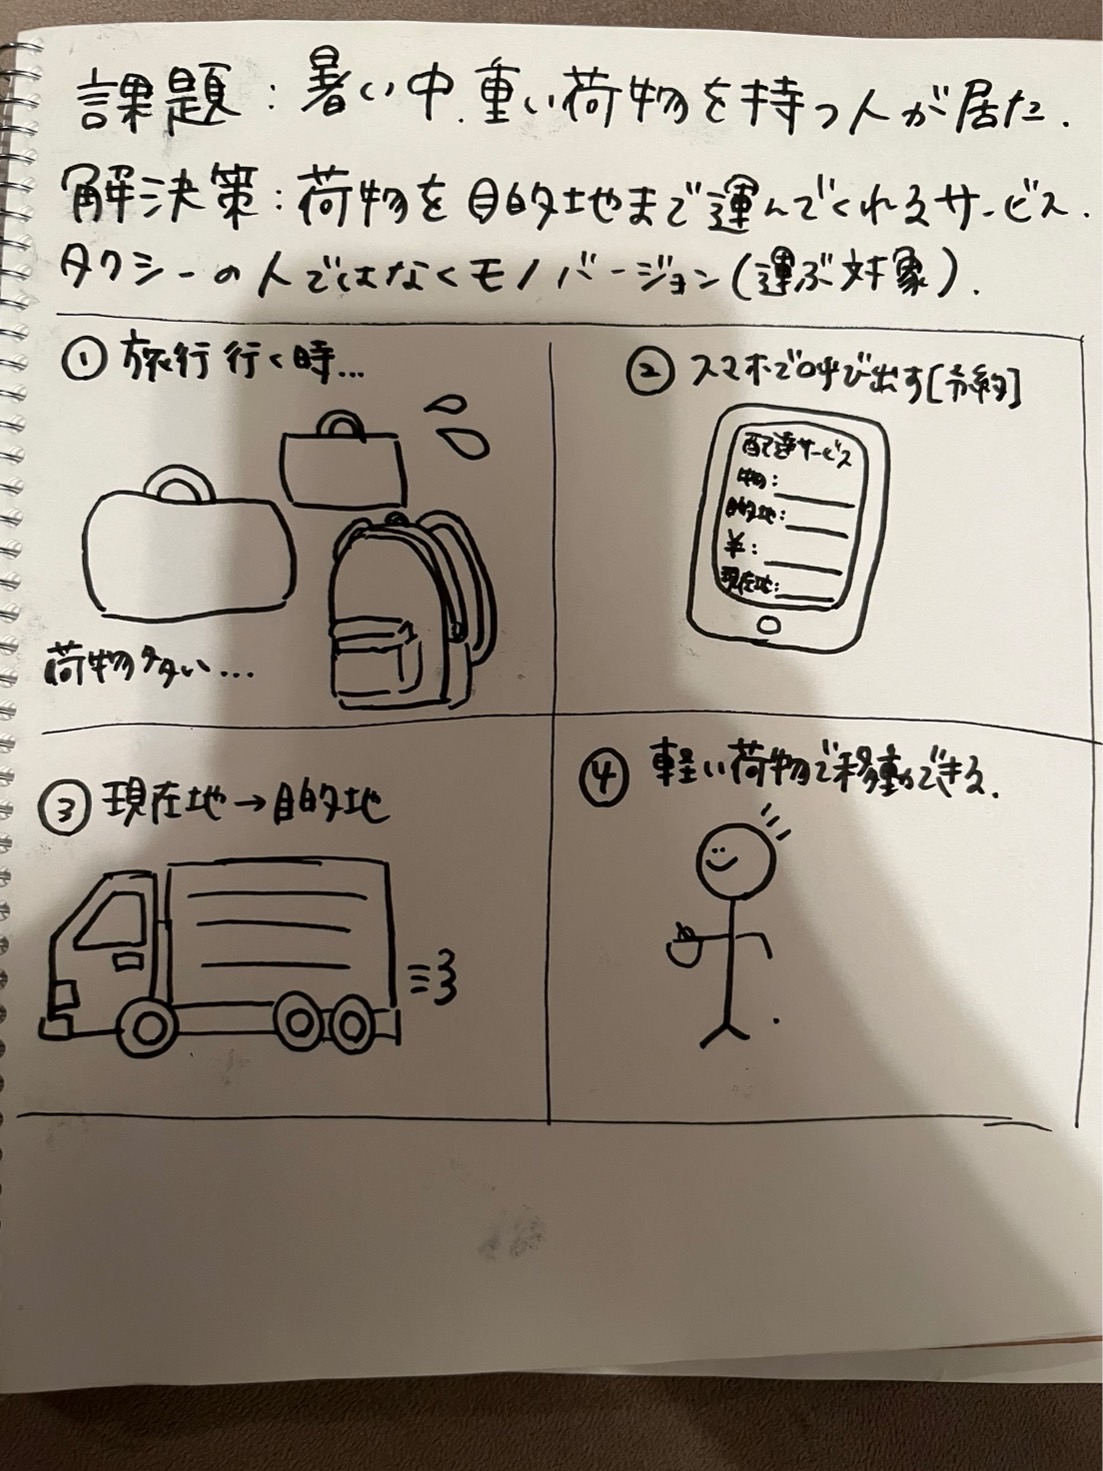 課題：暑い中、重い荷物を持つ人が居た.
解決策：荷物を目的地まで運んでくれるサービス.
タクシーの人ではなくモノバージョン(運ぶ対象).
① 旅行行く時...
荷物多い...
② スマホで呼び出す[予約]
配達サービス
物：
目的地：
¥：
現在地：
③ 現在地→目的地
④ 軽い荷物で移動できる.